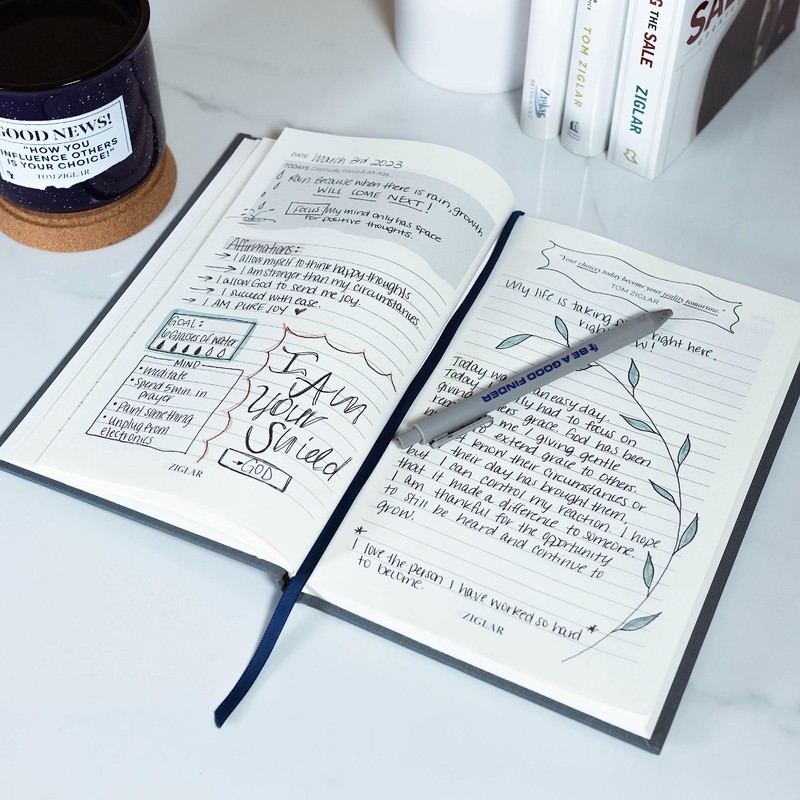 GOOD NEWS!
"HOW YOU
INFLUENCE OTHERS
IS YOUR CHOICE!"
TOM ZIGLAR
Ziglar
TOM ZIGLAR
THE SALE
ZIGLAR
DATE March 3rd 2023
TODAYS Gratitude, Focus & Ah-has
Rain. Because when there is rain, growth
WILL COME NEXT!
FOCUS/My mind only has space
for positive thoughts.
Affirmations:
→ I allow myself to think happy thoughts
→ I am stronger than my circumstances
→ I allow God to send me joy.
→ I succeed with ease.
→ I AM PURE JOY ♥
GOAL:
6 Glasses of water
MIND
• Meditate
• Spend 5 min in
prayer
• Paint something
• Unplug from
electronics
I Am
Your
Shield
-GOD
ZIGLAR
"Your choices today become your reality tomorrow."
TOM ZIGLAR
My life is taking right here,
right
BE A GOOD FINDER
Today wa an easy day.
Today lly had to focus on
giving others grace. God has been
me, giving gentle
extend grace to others.
know their circumstances or
their day has brought them,
but I can control my reaction. I hope
that it made a difference to someone.
I am thankful for the opportunity
to still be heard and continue to
grow.
*
I love the person I have worked so hard *
to become.
ZIGLAR